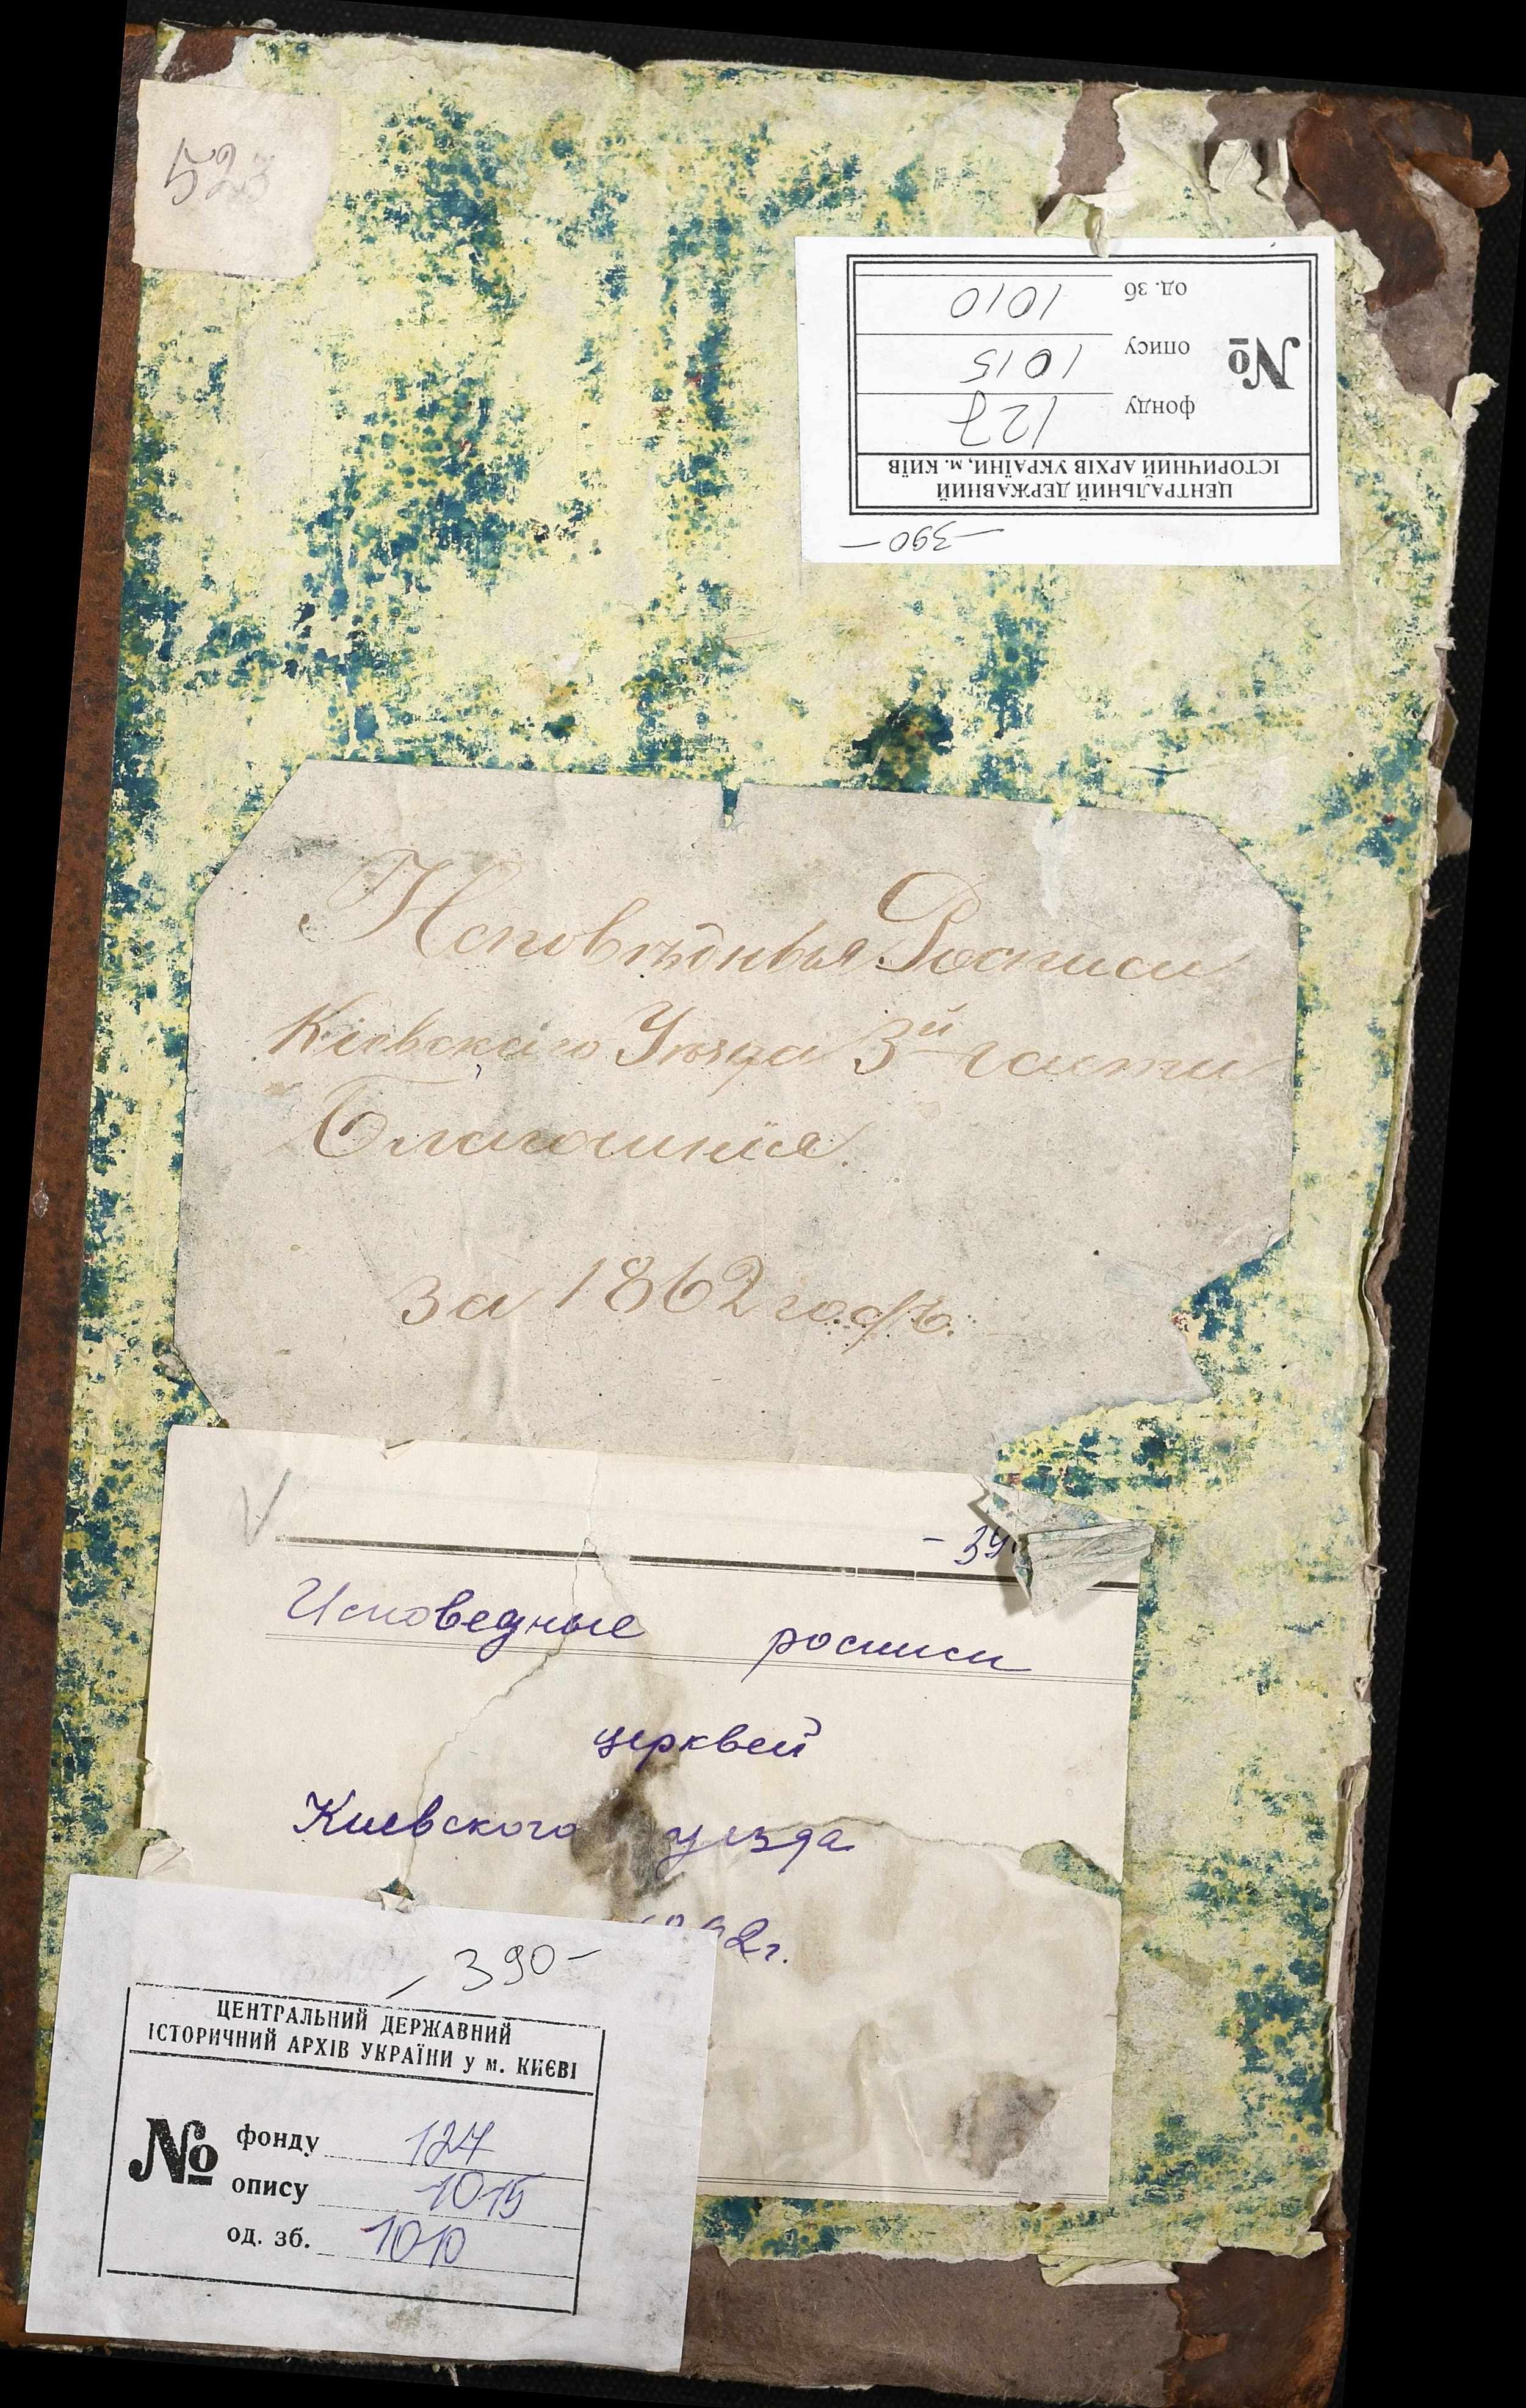 523
од. зб 1010
№ опису 1015
фонду 127
ЦЕНТРАЛЬНИЙ ДЕРЖАВНИЙ
ІСТОРИЧНИЙ АРХІВ УКРАЇНИ, м. КИЇВ
-390-
Исповѣдныя Росписи
Кіевскаго Уѣзда 3й части
Благочинія.
за 1862 годъ.
Исповедные росписи
церквей
Киевского уезда
2г.
-390-
ЦЕНТРАЛЬНИЙ ДЕРЖАВНИЙ
ІСТОРИЧНИЙ АРХІВ УКРАЇНИ у м. КИЄВІ
№ фонду 127
опису 1015
од. зб. 1010